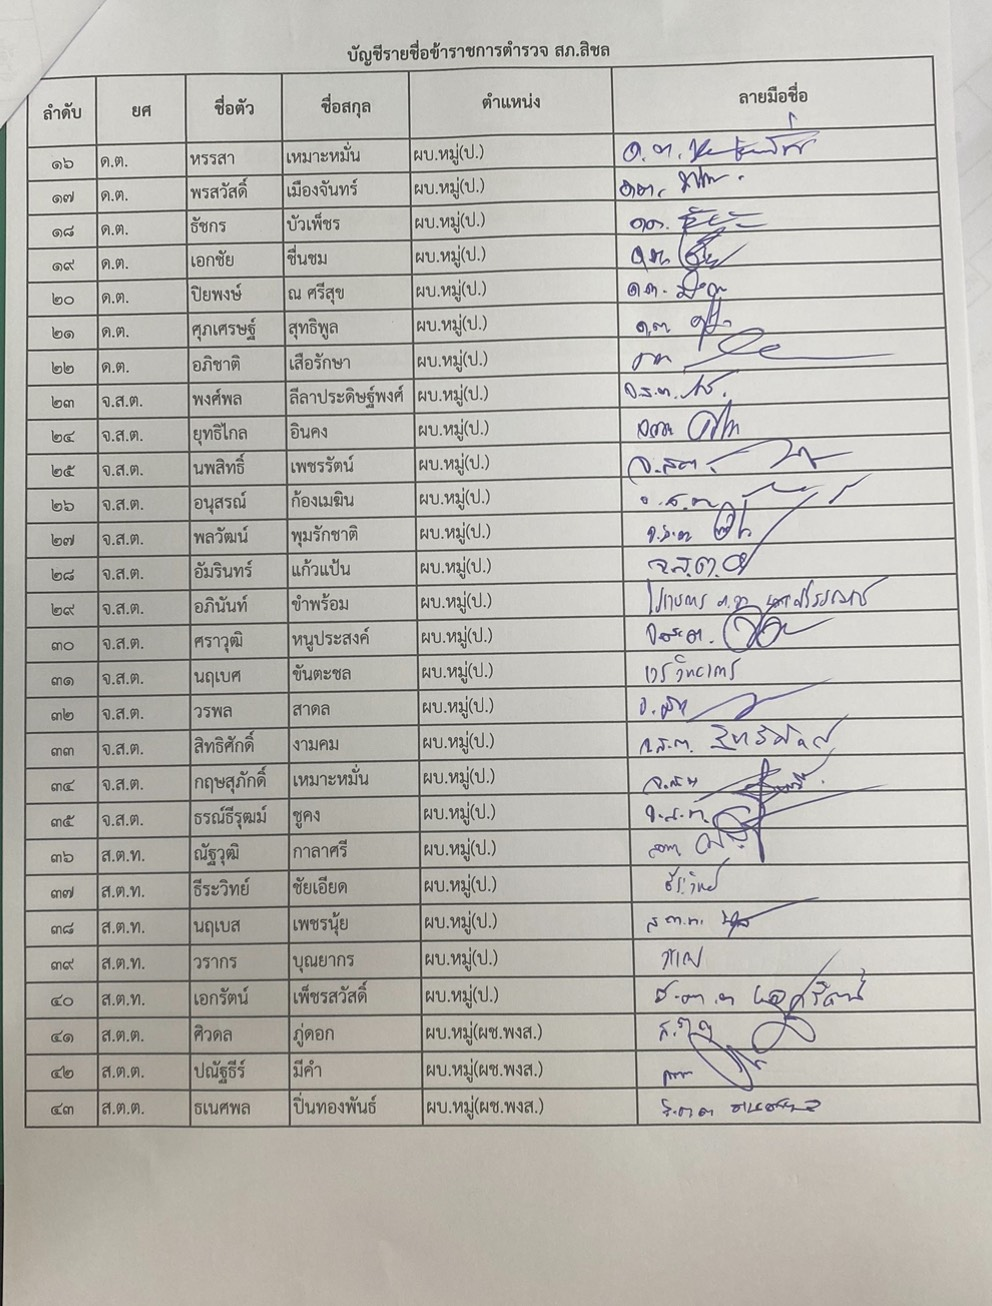 บัญชีรายชื่อข้าราชการตำรวจ สภ.สิชล
ลำดับ ยศ ชื่อตัว ชื่อสกุล ตำแหน่ง ลายมือชื่อ
๑๖ ด.ต. หรรสา เหมาะหมั่น ผบ.หมู่(ป.) ด.ต.
๑๗ ด.ต. พรสวัสดิ์ เมืองจันทร์ ผบ.หมู่(ป.) ดต.
๑๘ ด.ต. ธัชกร บัวเพ็ชร ผบ.หมู่(ป.) ดต.
๑๙ ด.ต. เอกชัย ชื่นชม ผบ.หมู่(ป.)
๒๐ ด.ต. ปิยพงษ์ ณ ศรีสุข ผบ.หมู่(ป.) ด.ต.
๒๑ ด.ต. ศุภเศรษฐ์ สุทธิพูล ผบ.หมู่(ป.) ด.ต.
๒๒ ด.ต. อภิชาติ เสือรักษา ผบ.หมู่(ป.)
๒๓ จ.ส.ต. พงศ์พล ลีลาประดิษฐ์พงศ์ ผบ.หมู่(ป.) จ.ส.ต.
๒๔ จ.ส.ต. ยุทธิไกล อินคง ผบ.หมู่(ป.)
๒๕ จ.ส.ต. นพสิทธิ์ เพชรรัตน์ ผบ.หมู่(ป.) จ.สต.
๒๖ จ.ส.ต. อนุสรณ์ ก้องเมฆิน ผบ.หมู่(ป.) จ.ส.ต.
๒๗ จ.ส.ต. พลวัฒน์ พุมรักชาติ ผบ.หมู่(ป.) จ.ส.ต
๒๘ จ.ส.ต. อัมรินทร์ แก้วแป้น ผบ.หมู่(ป.) จ.ส.ต.
๒๙ จ.ส.ต. อภินันท์ ขำพร้อม ผบ.หมู่(ป.)
๓๐ จ.ส.ต. ศราวุฒิ หนูประสงค์ ผบ.หมู่(ป.)
๓๑ จ.ส.ต. นฤเบศ ขันตะชล ผบ.หมู่(ป.)
๓๒ จ.ส.ต. วรพล สาดล ผบ.หมู่(ป.)
๓๓ จ.ส.ต. สิทธิศักดิ์ งามคม ผบ.หมู่(ป.) จ.ส.ต.
๓๔ จ.ส.ต. กฤษสุภักดิ์ เหมาะหมั่น ผบ.หมู่(ป.)
๓๕ จ.ส.ต. ธรณ์ธีรุฒม์ ชูคง ผบ.หมู่(ป.) จ.ส.ต.
๓๖ ส.ต.ท. ณัฐวุฒิ กาลาศรี ผบ.หมู่(ป.)
๓๗ ส.ต.ท. ธีระวิทย์ ชัยเอียด ผบ.หมู่(ป.)
๓๘ ส.ต.ท. นฤเบส เพชรนุ้ย ผบ.หมู่(ป.) ส.ต.ท.
๓๙ ส.ต.ท. วรากร บุณยากร ผบ.หมู่(ป.)
๔๐ ส.ต.ท. เอกรัตน์ เพ็ชรสวัสดิ์ ผบ.หมู่(ป.)
๔๑ ส.ต.ต. ศิวดล ภู่ดอก ผบ.หมู่(ผช.พงส.)
๔๒ ส.ต.ต. ปณัฐธีร์ มีคำ ผบ.หมู่(ผช.พงส.)
๔๓ ส.ต.ต. ธเนศพล ปิ่นทองพันธ์ ผบ.หมู่(ผช.พงส.)